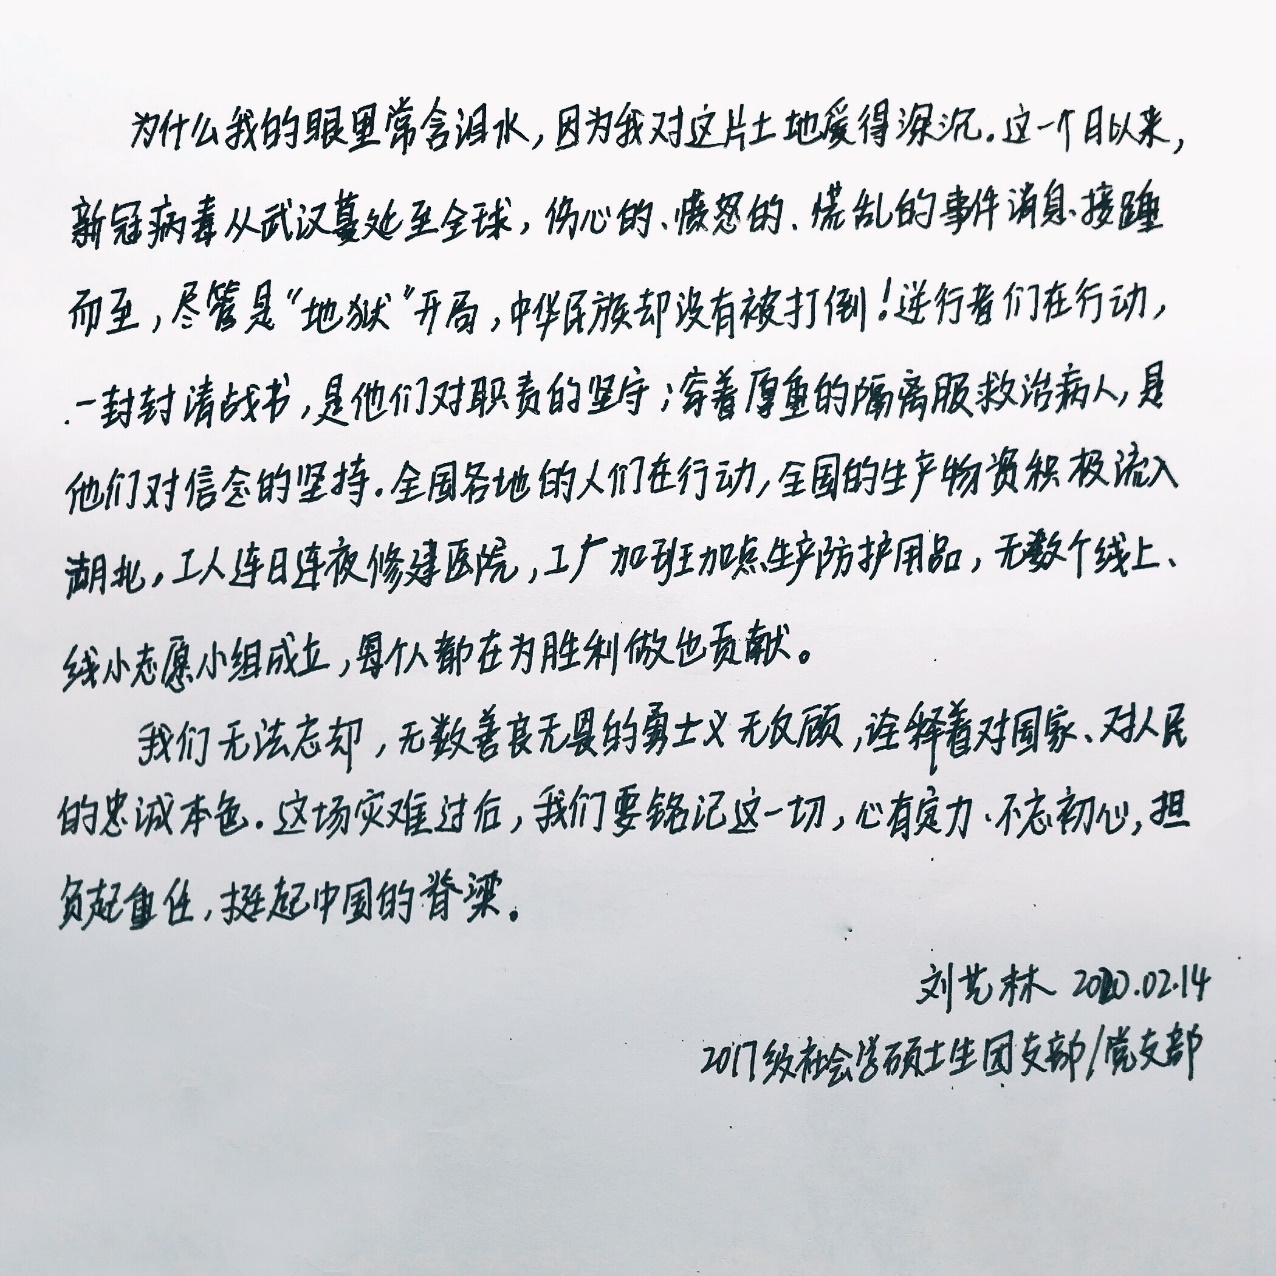 为什么我的眼里常含泪水，因为我对这片土地爱得深沉。这一个月以来，
新冠病毒从武汉蔓延至全球，伤心的、愤怒的、慌乱的事件消息接踵
而至，尽管是“地狱”开局，中华民族却没有被打倒！逆行者们在行动，
一封封请战书，是他们对职责的坚守；穿着厚重的隔离服救治病人，是
他们对信念的坚持。全国各地的人们在行动，全国的生产物资积极流入
湖北，工人连日连夜修建医院，工厂加班加点生产防护用品，无数个线上、
线下志愿小组成立，每个人都在为胜利做出贡献。
我们无法忘却，无数善良无畏的勇士义无反顾，诠释着对国家、对人民
的忠诚本色。这场灾难过后，我们要铭记这一切，心有定力、不忘初心，担
负起重任，挺起中国的脊梁。
刘艺林 2020.02.14
2017级社会学硕士生团支部/党支部